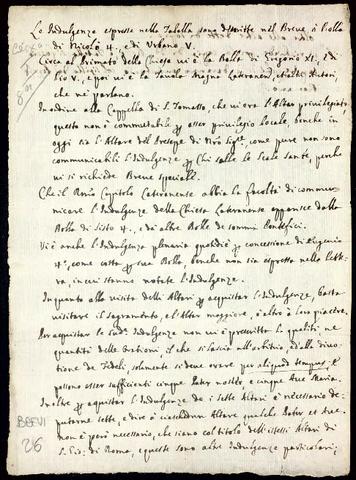 Le Indulgenze espresse nella Tabella sono descritte nel Breve ò Bolla
di Nicolò 4., e di Urbano V.
Circa al Primato della Chiesa vi è la Bolla di Gregorio XI., e di
Pio V., e poi vi è la Tavola Magna Lateranen.,
che ne parlano.
In ordine alla Cappella di S. Tomasso, che vi era l'Altar privilegiato
questo non è communicabile per esser privilegio locale, benche in
oggi sia l'Altare del Presepe di Nro Sigre, come pure non sono
communicabili l'Indulgenze per Chi salle le Scale Sante, perche
vi si richiede Breve speciale.
Che il Capitolo Lateranense abbia la facoltà di commu-
nicare l'Indulgenze della Chiesa Lateranense apparisce dalla
Bolla di Sisto 4., e da altre Bolle de sommi Pontefici.
Vi è anche l'Indulgenza plenaria quotidie per concessione di Eugenio
4°, come costa per sua Bolla, benche non sia espresso nella lette-
ra, in cui stanno notate l'Indulgenze.
In quanto alla visita delli Altari per acquistar l'Indulgenze, basta
visitare il Sagramento, e l'Altar maggiore, ò altro à loro piacere.
Per acquistare le sudde Indulgenze non vi è prescritto la qualità, ne
quantità delle orationi, il che si lascia all'arbitrio, e alla divo-
tione de Fedeli solamente si deve orare per aliquod tempus, e
possono esser sufficienti cinque Pater nostri, e cinque Ave Maria.
Inoltre per acquistar l'Indulgenze de i sette Altari è necessario de-
putarne sette, e dire à ciaschedun Altare qualche Pater et Ave.
non è però necessario, che siano col titolo dell'istessi Altari di
S. Gio: di Roma, e queste sono altre Indulgenze particolari,
BREVI
26